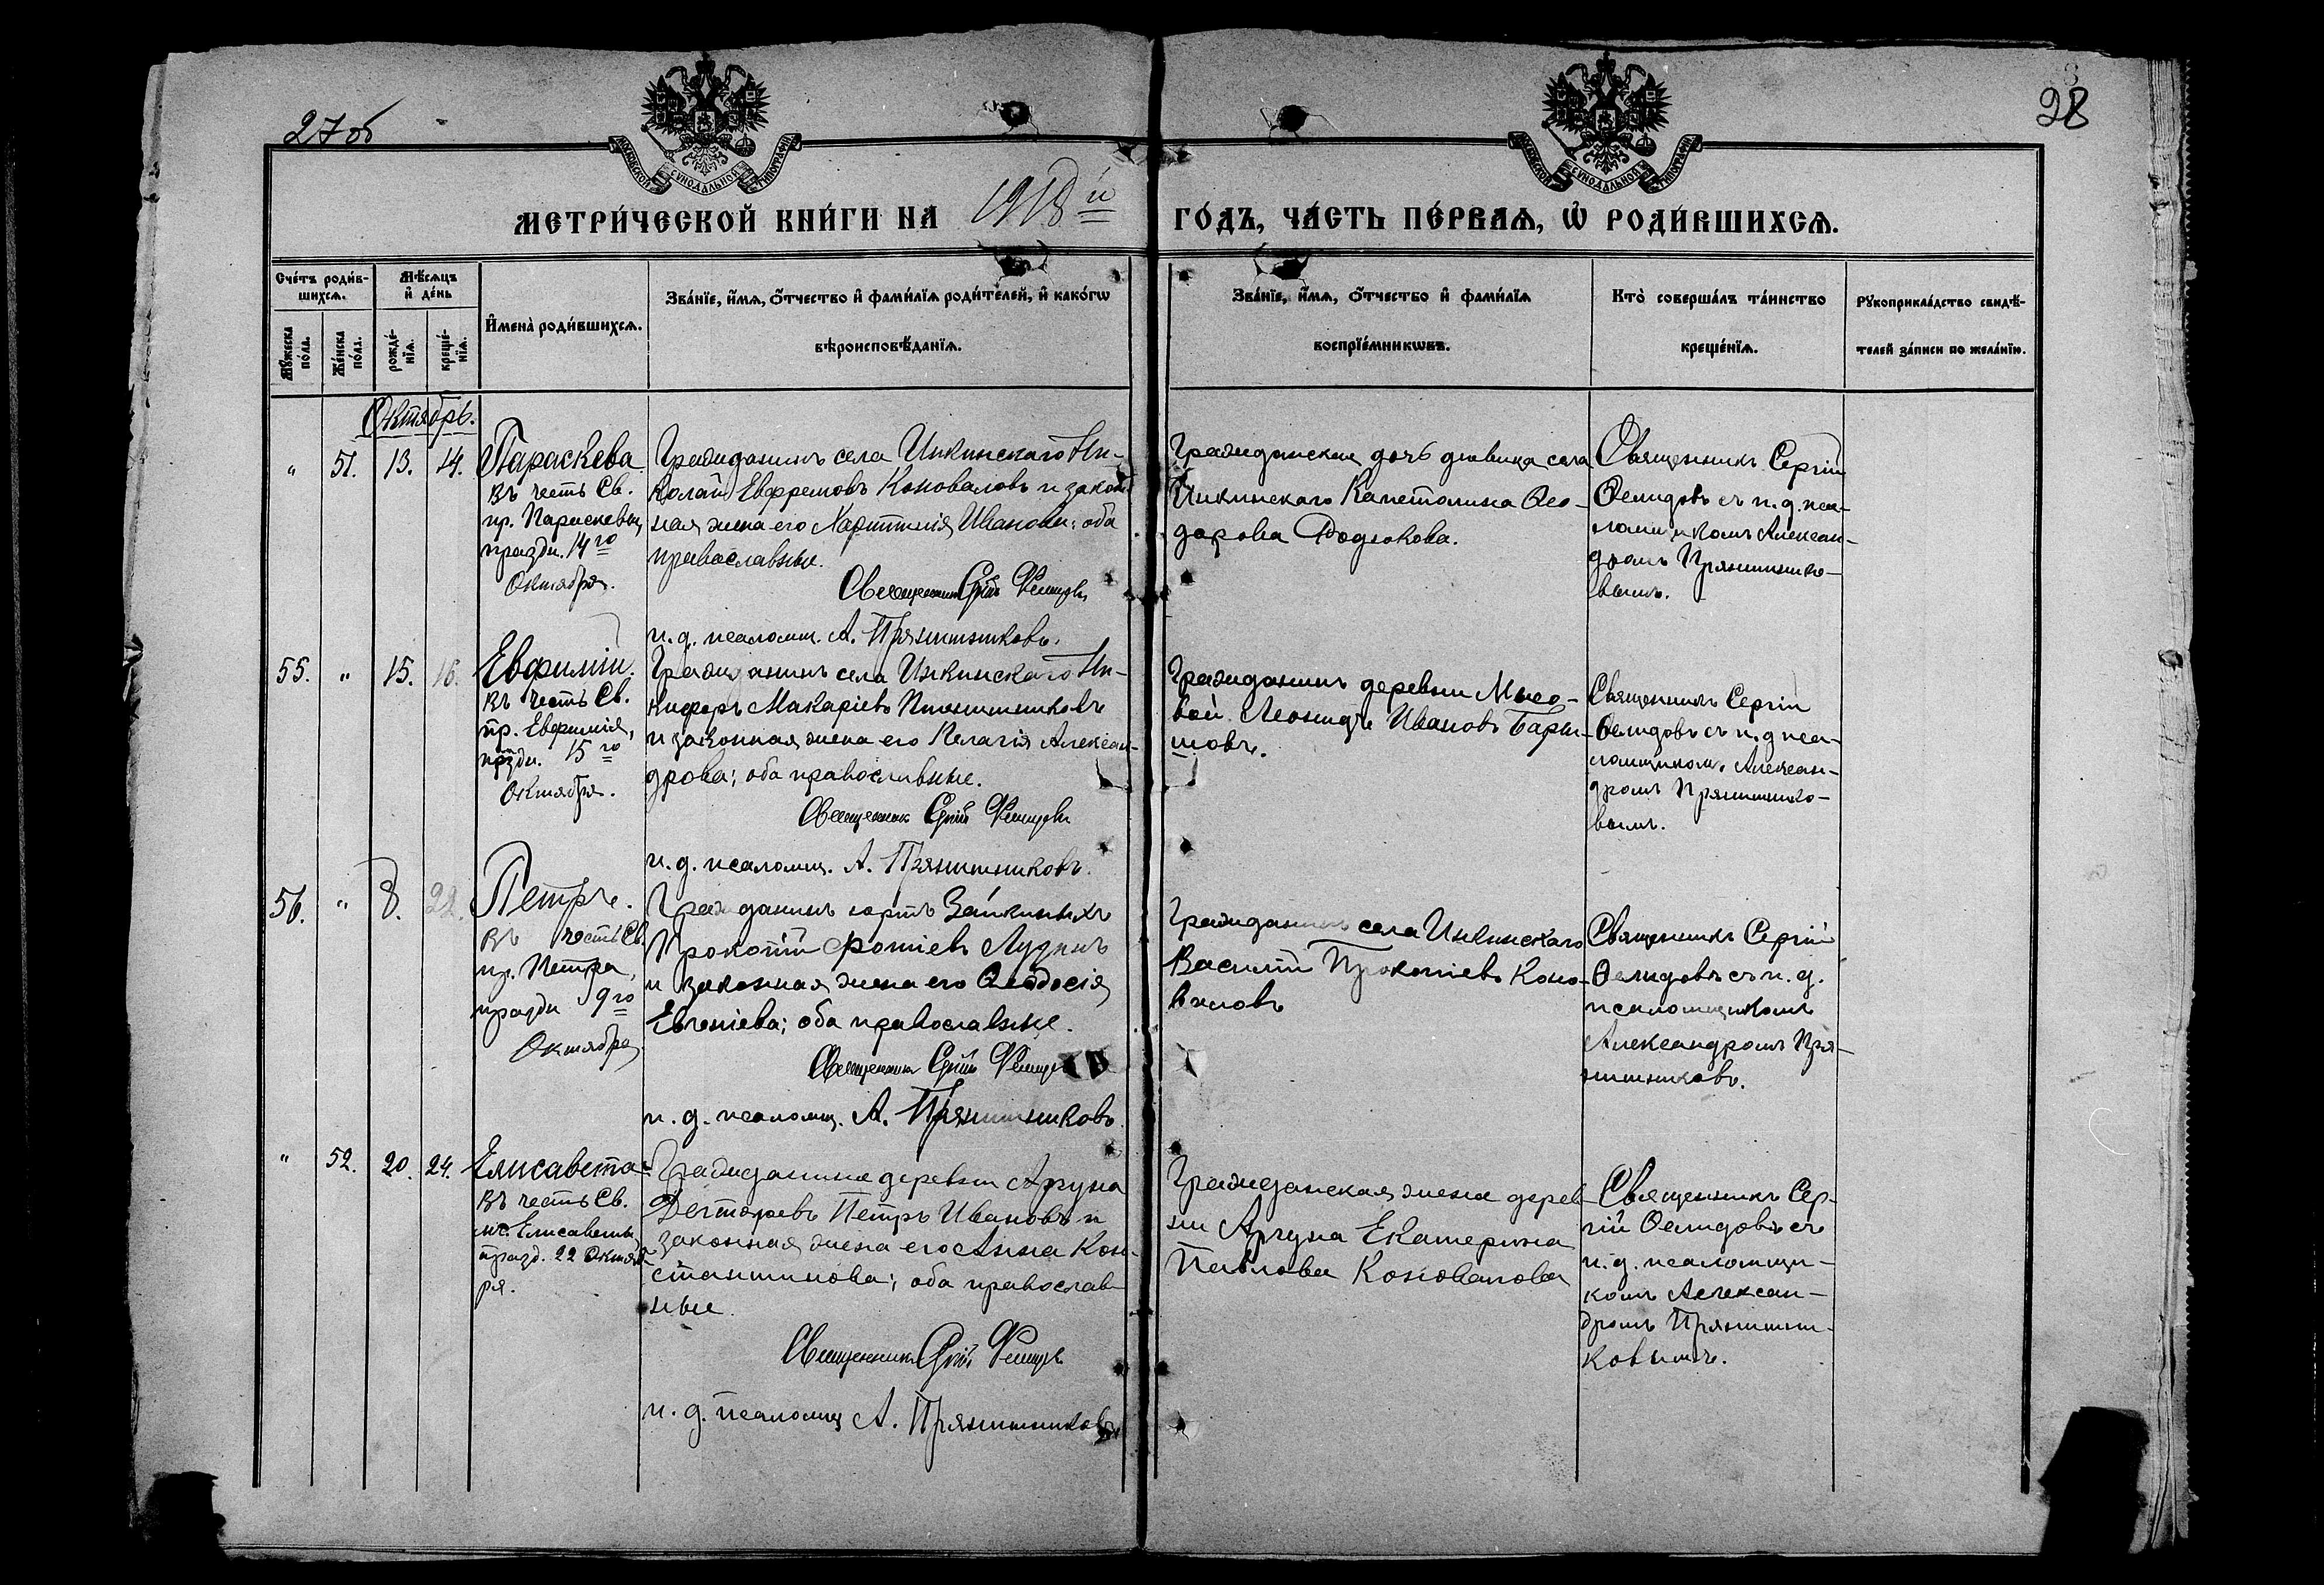 27 об
28
МОСКОВСКОЙ СѴНОДАЛЬНОЙ ТИПОГРАФІИ
МОСКОВСКОЙ СѴНОДАЛЬНОЙ ТИПОГРАФІИ
МЕТРИ́ЧЕСКОЙ КНИ́ГИ НА 1918 й ГО́ДЪ, ЧА́СТЬ ПЕ́РВАѦ, Ѽ РОДИ́ВШИХСѦ.
Сче́тъ роди́в-
шихсѧ.
Мѣ́сѧцъ
и҆ де́нь
Мꙋ́жеска
по́ла.
Же́нска
по́ла.
рожде́-
нїѧ.
креще́-
нїѧ.
И҆мена̀ роди́вшихсѧ.
Зва́нїе, и҆́мѧ, ѻ҆́тчество и҆ фами́лїѧ роди́телей, и҆ како́гѡ
вѣроисповѣ́данїѧ.
Зва́нїе, и҆́мѧ, ѻ҆́тчество и҆ фами́лїѧ
воспрїе́мникѡвъ.
Кто̀ соверша́лъ та́инство
креще́нїѧ.
Рꙋкоприкла́дство свидѣ́-
телей за́писи по жела́нїю.
Октябрь.
" 51. 13. 14.
Параскева
въ честь Св.
пр. Параскевы,
праздн. 14го
Октября.
Гражданинъ села Инкинскаго Ни-
колай Евфремовъ Коноваловъ и закон
ная жена его Иванова; оба
православные.
Священникъ Сергій Фелидовъ
и. д. псаломщ. А. Прянишниковъ.
Гражданская дочь девица села
Инкинскаго Капетолина Ѳео-
дорова Родюкова.
Священникъ Сергій
Ѳелидовъ съ и. д. пса-
ломщикомъ Алексан-
дромъ Прянишнико-
вымъ.
55. " 15. 16.
Евфимій.
въ честь Св.
пр. Евфимія,
праздн. 15го
Октября.
Гражданинъ села Инкинскаго Ни-
кифоръ Макаріевъ
и законная жена его Пелагія Алексан-
дрова; оба православные.
Священникъ Сергій Фелидовъ
и. д. псаломщ. А. Прянишниковъ.
Гражданинъ деревни Мысо-
вой Леонидъ Ивановъ Бары-
шовъ.
Священникъ Сергій
Ѳелидовъ съ и. д пса-
ломщикомъ Алексан-
дромъ Прянишнико-
вымъ.
56. " 8. 22.
Петръ.
въ честь Св.
пр. Петра,
праздн 9го
Октября
Гражданинъ юртъ Зайкиныхъ
Прокопій Фотіевъ Лузинъ
и законная жена его Ѳеодосія
Евгеніева; оба православные.
Священникъ Сергій Фелидовъ
и. д. псаломщ. А. Прянишниковъ.
Гражданинъ села Инкинскаго
Василій Прокопіевъ Коно-
валовъ
Священникъ Сергій
Ѳелидовъ съ и. д.
псаломщикомъ
Александромъ Пря-
нишниковъ.
" 52. 20. 24.
Елисавета
въ честь Св.
мч. Елисаветы
празд. 22 Октяб-
ря.
Гражданинъ деревни Аргуна
Дегтяревъ Петръ Ивановъ и
законная жена его Анна Кон-
стантинова; оба православ-
ные
Священникъ Сергій Фелидовъ
и. д. псаломщ А. Прянишниковъ
Гражданская жена дерев-
ни Аргуна Екатерина
Павлова Коновалова
Священникъ Сер-
гій Ѳелидовъ съ
и. д. псаломщи-
комъ Алексан-
дромъ Прянишни-
ковымъ.